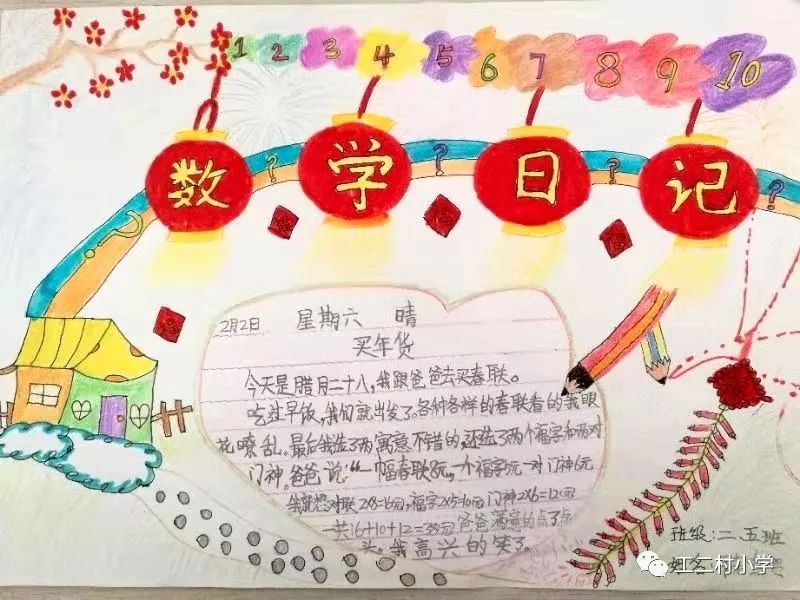 1 2 3 4 5 6 7 8 9 10
数 学 日 记
? ? ? ?
2月2日 星期六 晴
买年货
今天是腊月二十八,我跟爸爸去买春联。
吃过早饭,我们就出发了。各种各样的春联看的我眼
花嘹乱。最后我选了两 寓意不错的,还选了两个福字和两对
门神。爸爸说:“一幅春联8元,一个福字5元一对门神6元
我就想对联2×8=16元,福字2×5=10元门神2×6=12元
一共16+10+12=38元爸爸满意的点了点
头。我高兴的笑了。
班级:二.五班
姓名:
工二村小学